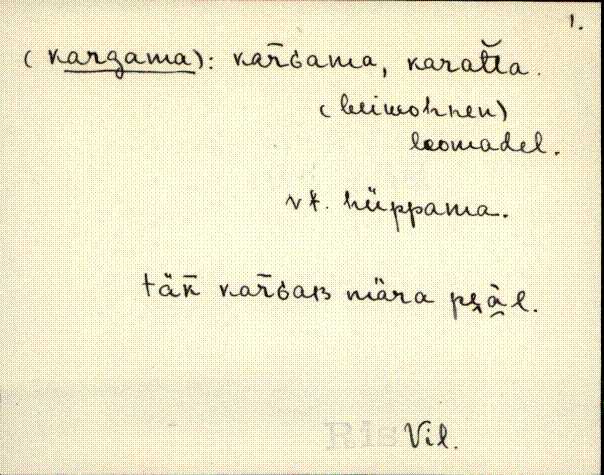 1.
(kargama): kar̄ɢama, karattа.
(beiwohnen)
loomadel.
vt. hüppama.
täk̄ kar̄ɢaʙ mära pɛ̬äl.
Ris
Vil.